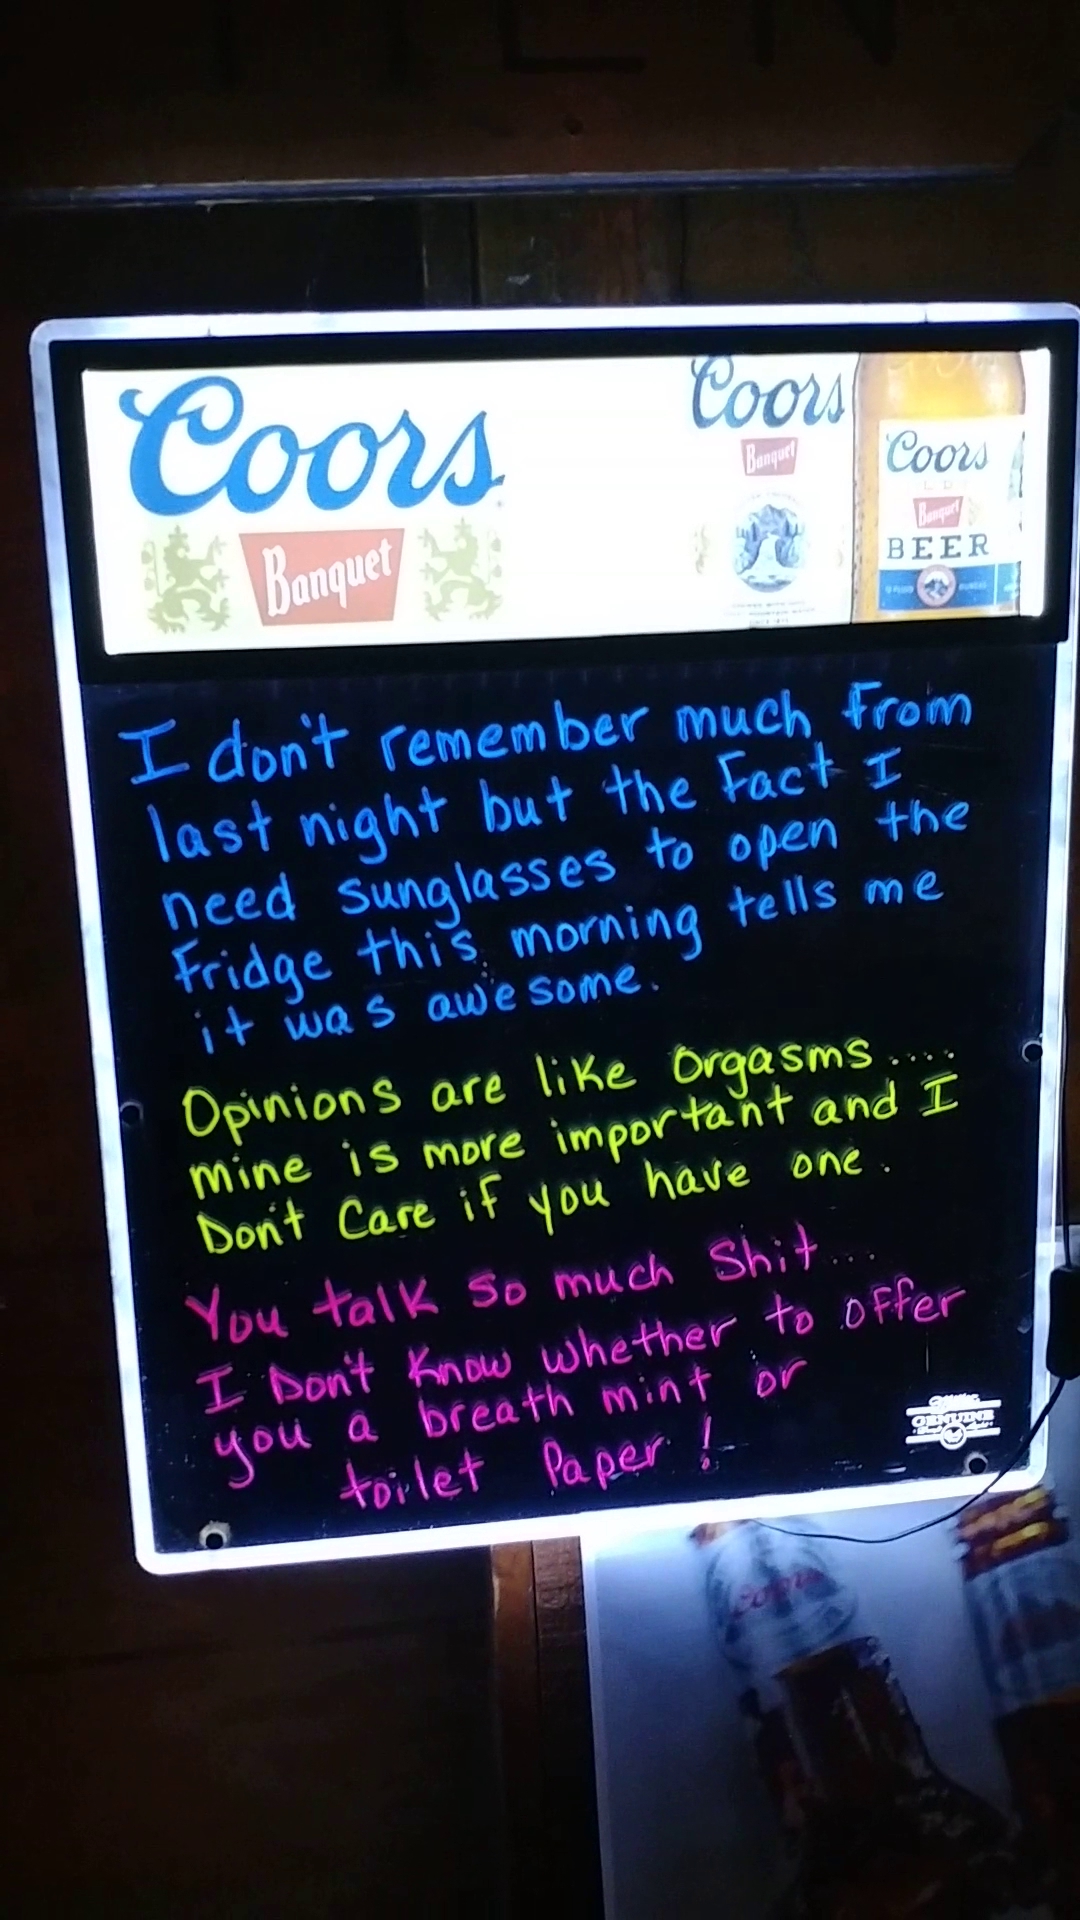 Coors
Banquet
Coors
Banquet
Coors
Banquet
BEER
I don't remember much from
last night but the Fact I
need sunglasses to open the
Fridge this morning tells me
it was awesome.
Opinions are like Orgasms....
mine is more important and I
Don't Care if you have one.
You talk so much Shit...
I Don't Know whether to offer
you a breath mint or
toilet Paper!
GENUINE
Coors